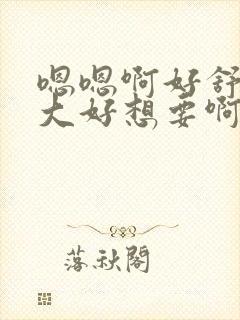 嗯嗯啊好舒
大好想要啊
落秋阁